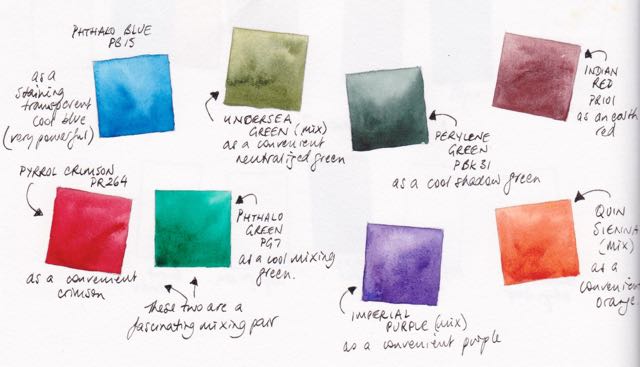 PHTHALO BLUE
PB15
as a
staining
transparent
cool blue
(very powerful)
UNDERSEA
GREEN (mix)
as a convenient
neutralized green
PERYLENE
GREEN
PBk31
as a cool shadow green
INDIAN
RED
PR101
as an earth
red
PYRROL CRIMSON
PR264
as a convenient
crimson
PHTHALO
GREEN
PG7
as a cool mixing
green.
These two are a
fascinating mixing pair
IMPERIAL
PURPLE (mix)
as a convenient purple
QUIN
SIENNA
(mix)
as a
convenien
orange